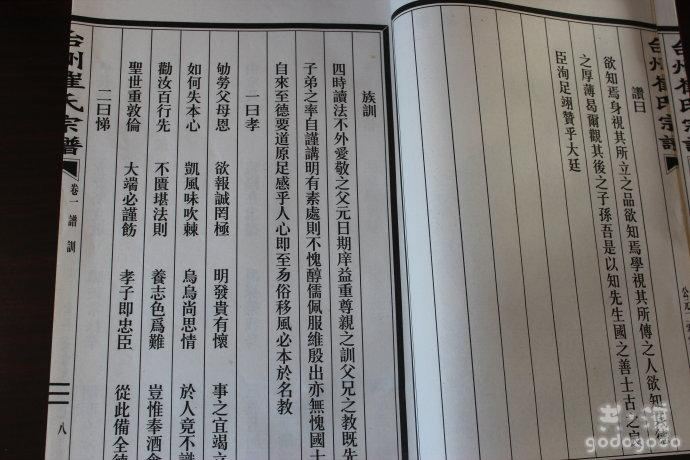 台州崔氏宗譜
讚曰
欲知焉身視其所立之品欲知焉學視其所傳之人欲知
之厚薄曷爾觀其後之子孫吾是以知先生國之善士古之良
臣洵足翊贊乎大廷
族訓
四時讀法不外愛敬之父元日期庠益重尊親之訓父兄之教既先
子弟之率自謹講明有素處則不愧醇儒佩服維殷出亦無愧國士
自來至德要道原足感乎人心即至易俗移風必本於名教
一曰孝
劬勞父母恩 欲報誠罔極 明發貴有懷 事之宜竭
如何失本心 凱風味吹棘 烏鳥尚思情 於人竟不識
勸汝百行先 不匱堪法則 養志色爲難 豈惟奉酒
聖世重敦倫 大端必謹飭 孝子即忠臣 從此備全
二曰悌
台州崔氏宗譜
卷一 譜訓
八
古深
godogoto